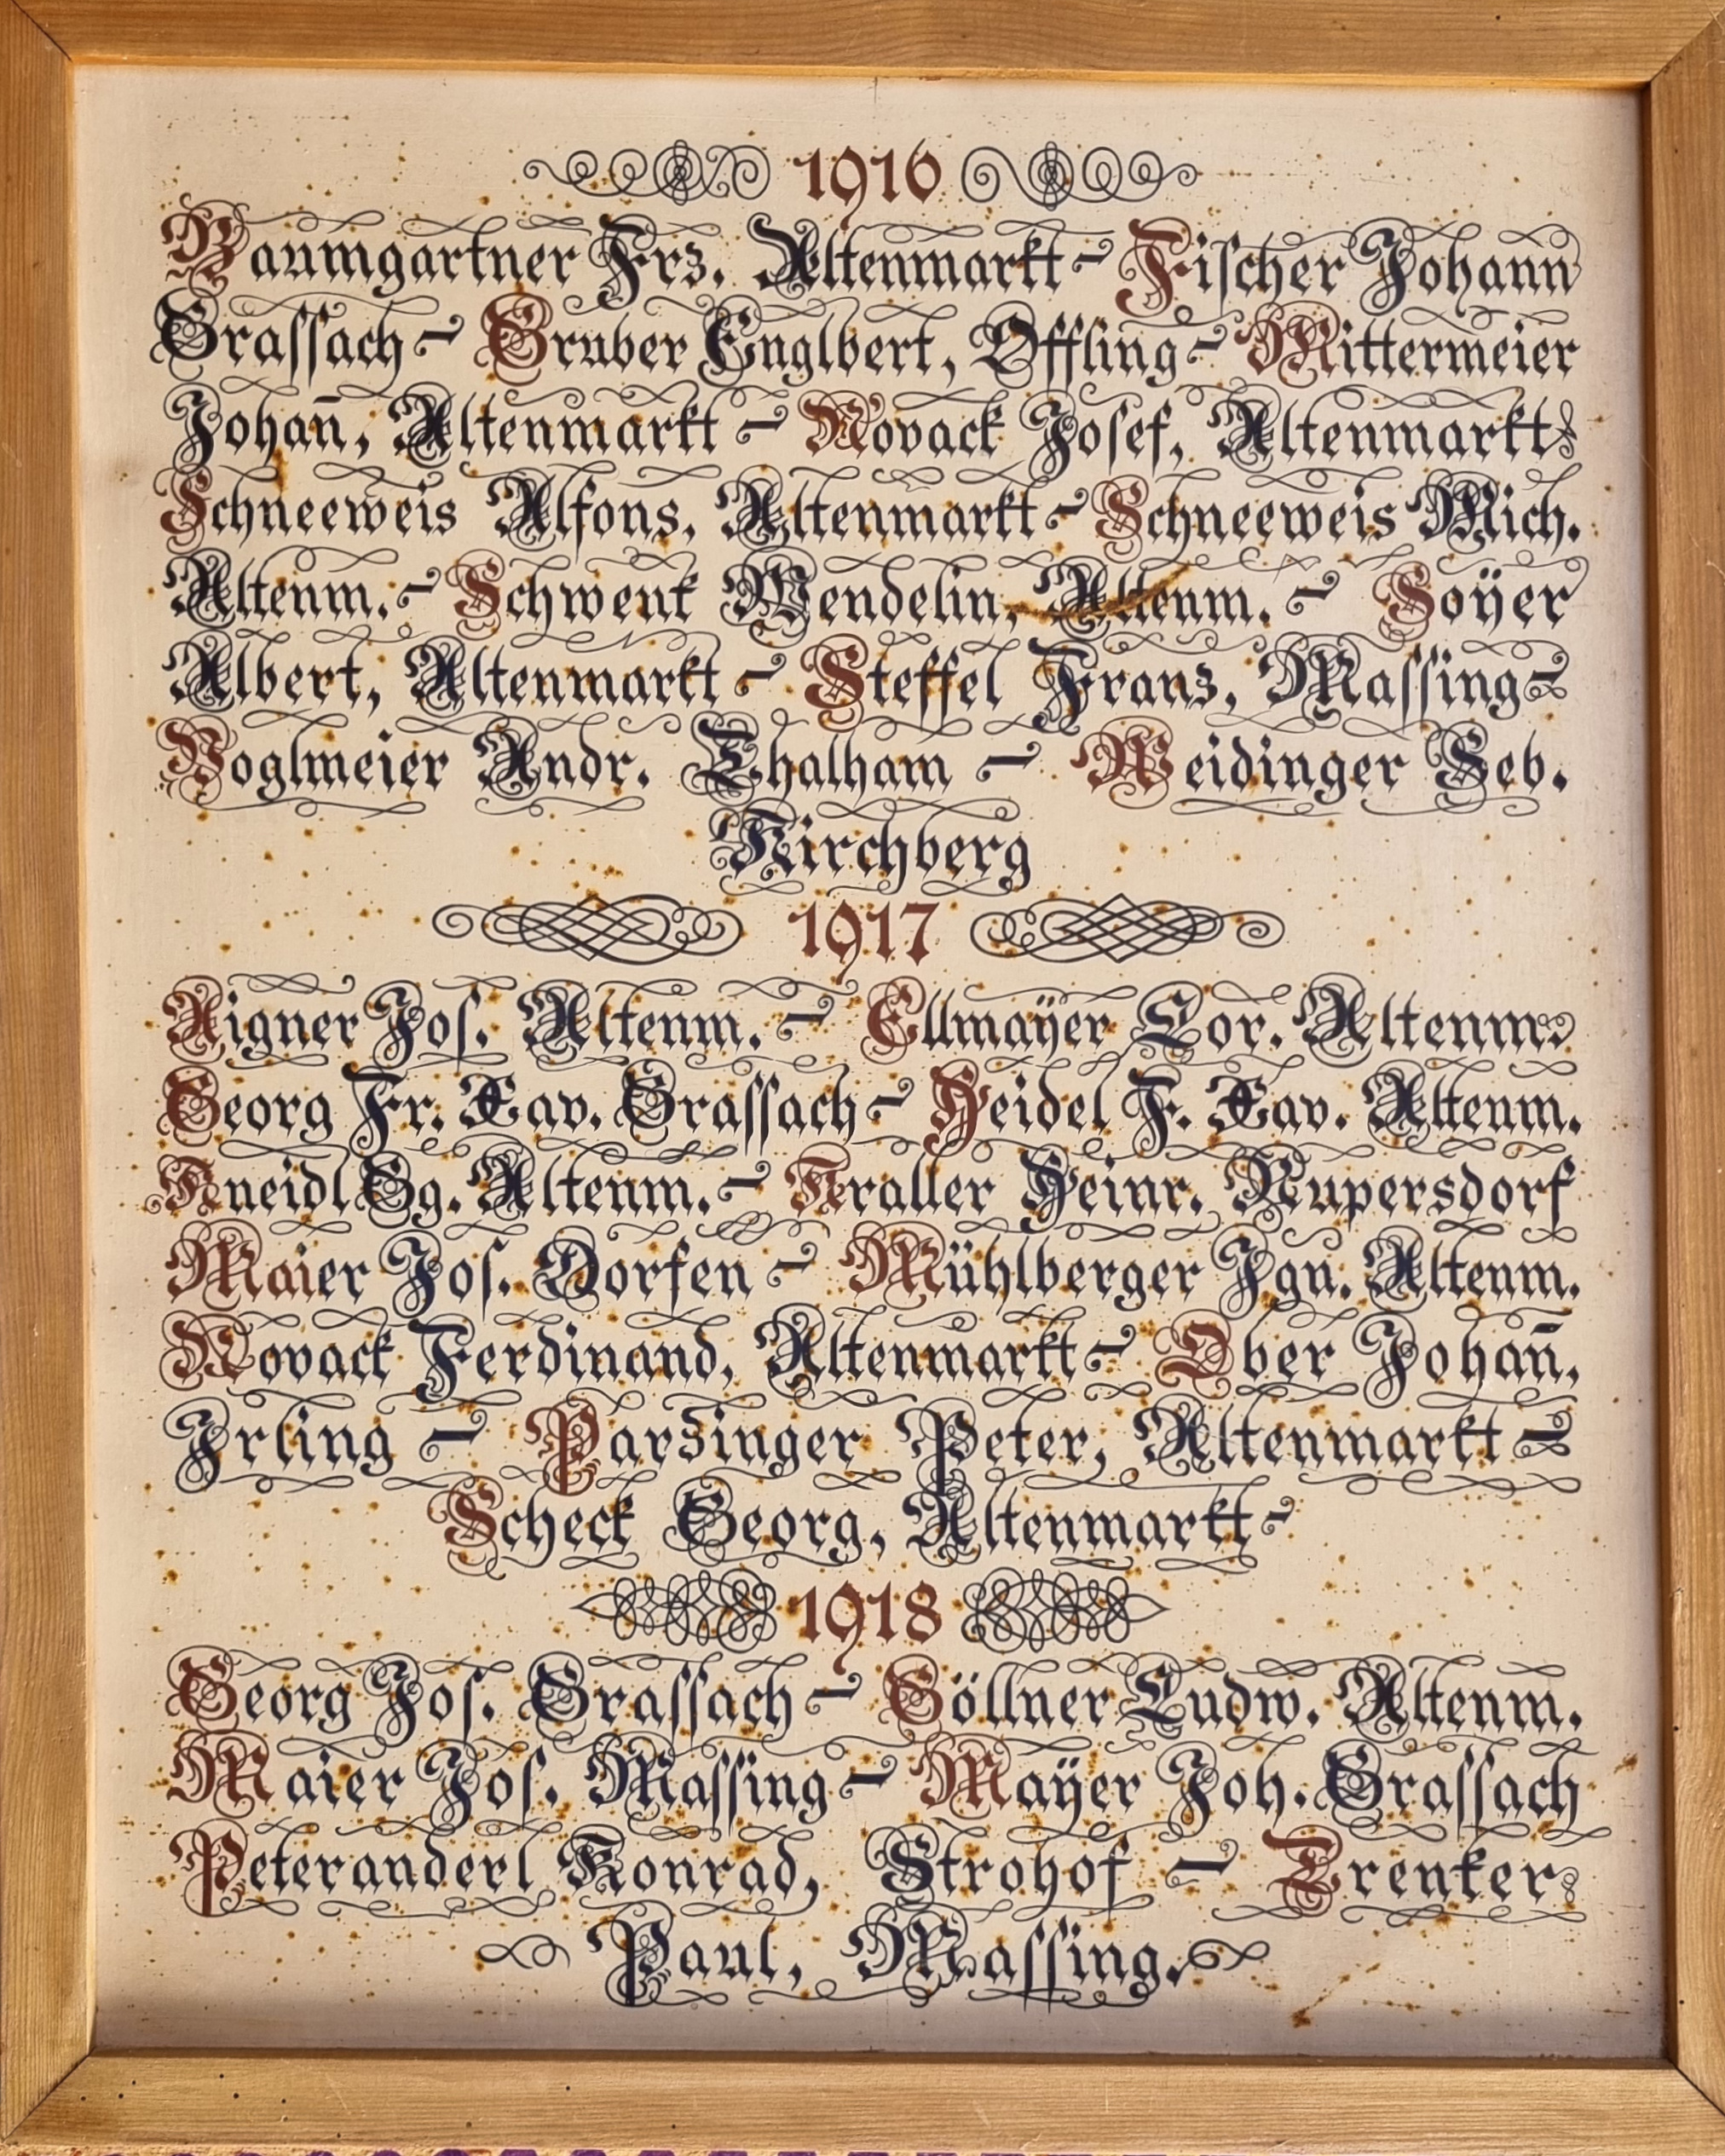 1916
Baumgartner Frz. Altenmarkt - Fischer Johann
Grassach - Gruber Englbert, Offling - Mittermeier
Johan̄, Altenmarkt - Novack Josef, Altenmarkt
Schneeweis Alfons, Altenmarkt - Schneeweis Mich.
Altenm. - Schwenk Wendelin, Altenm. - Soÿer
Albert, Altenmarkt - Steffel Franz, Massing -
Voglmeier Andr. Thalham - Weidinger Seb.
Kirchberg
1917
Aigner Jos. Altenm. - Ellmaÿer Cor. Altenm.
Georg Fr. Xav. Grassach - Heidel F. Xav. Altenm.
Kneidl Gg. Altenm. - Kraller Heinr. Rupersdorf
Maier Jos. Dorfen - Mühlberger Ign. Altenm.
Novack Ferdinand, Altenmarkt - Ober Johan̄,
Irling - Parzinger Peter, Altenmarkt -
Scheck Georg, Altenmarkt -
1918
Georg Jos. Grassach - Göllner Ludw. Altenm.
Maier Jos. Massing - Maÿer Joh. Grassach
Peteranderl Konrad, Strohof - Trenker
Paul, Massing.